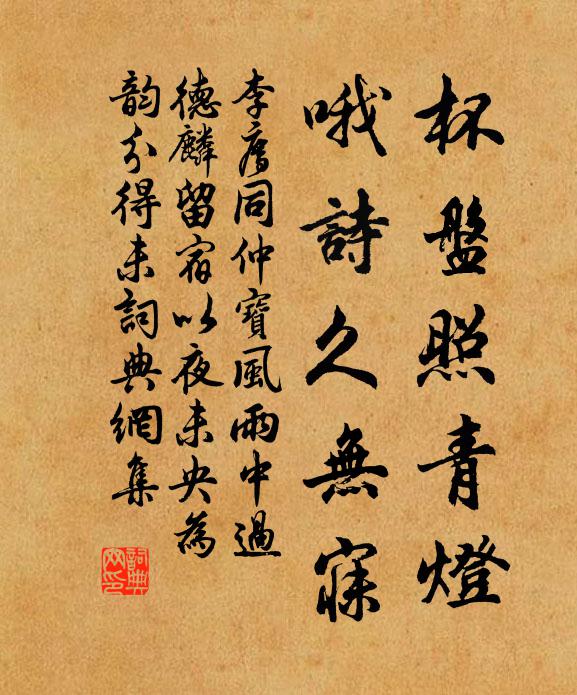 杯盤照青燈
哦詩久無寐
李廌同仲寶風雨中過
德麟留宿以夜未央為
韵分得未詞典網集
詞典网印